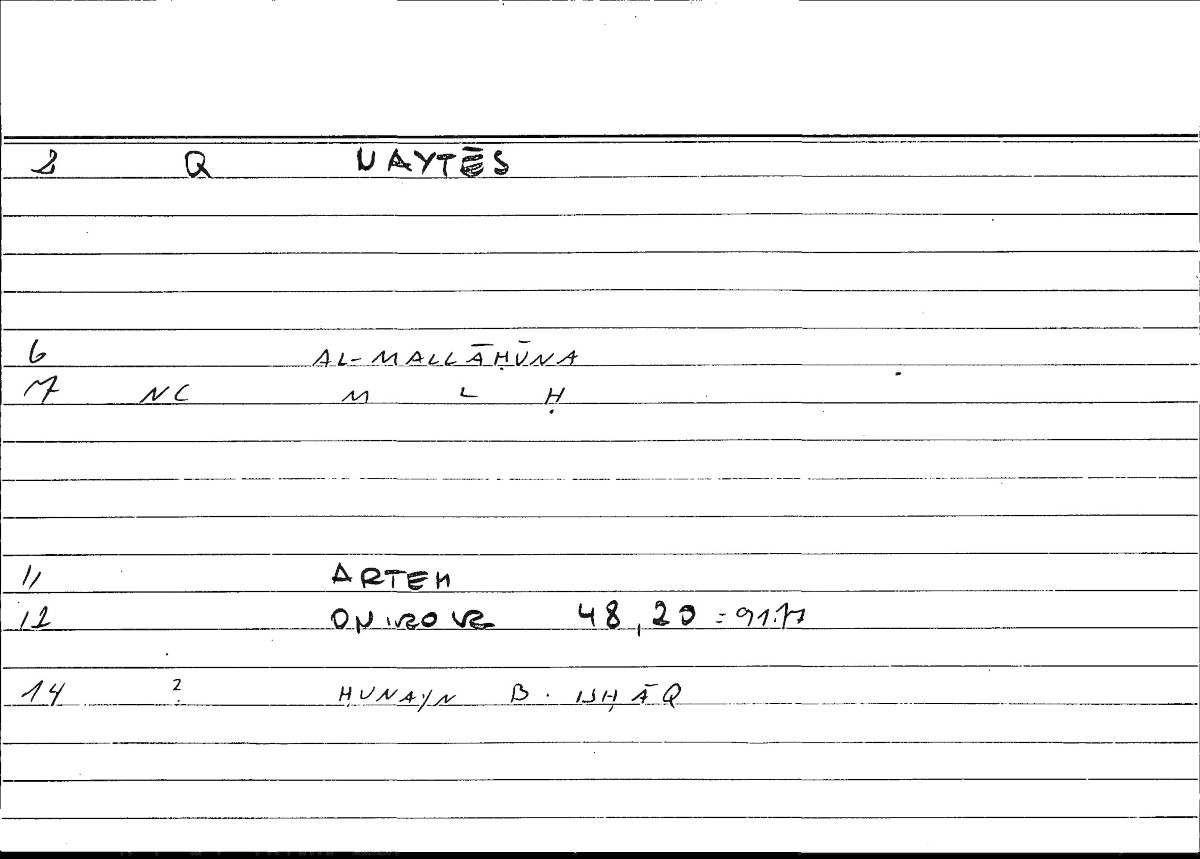 2 Q NAYTĒS
6 AL-MALLĀḤŪNA
7 NC M L Ḥ
11 ARTEM
12 ONIROKR 48,20 = 91.17
14 ? HUNAYN B. ISḤĀQ